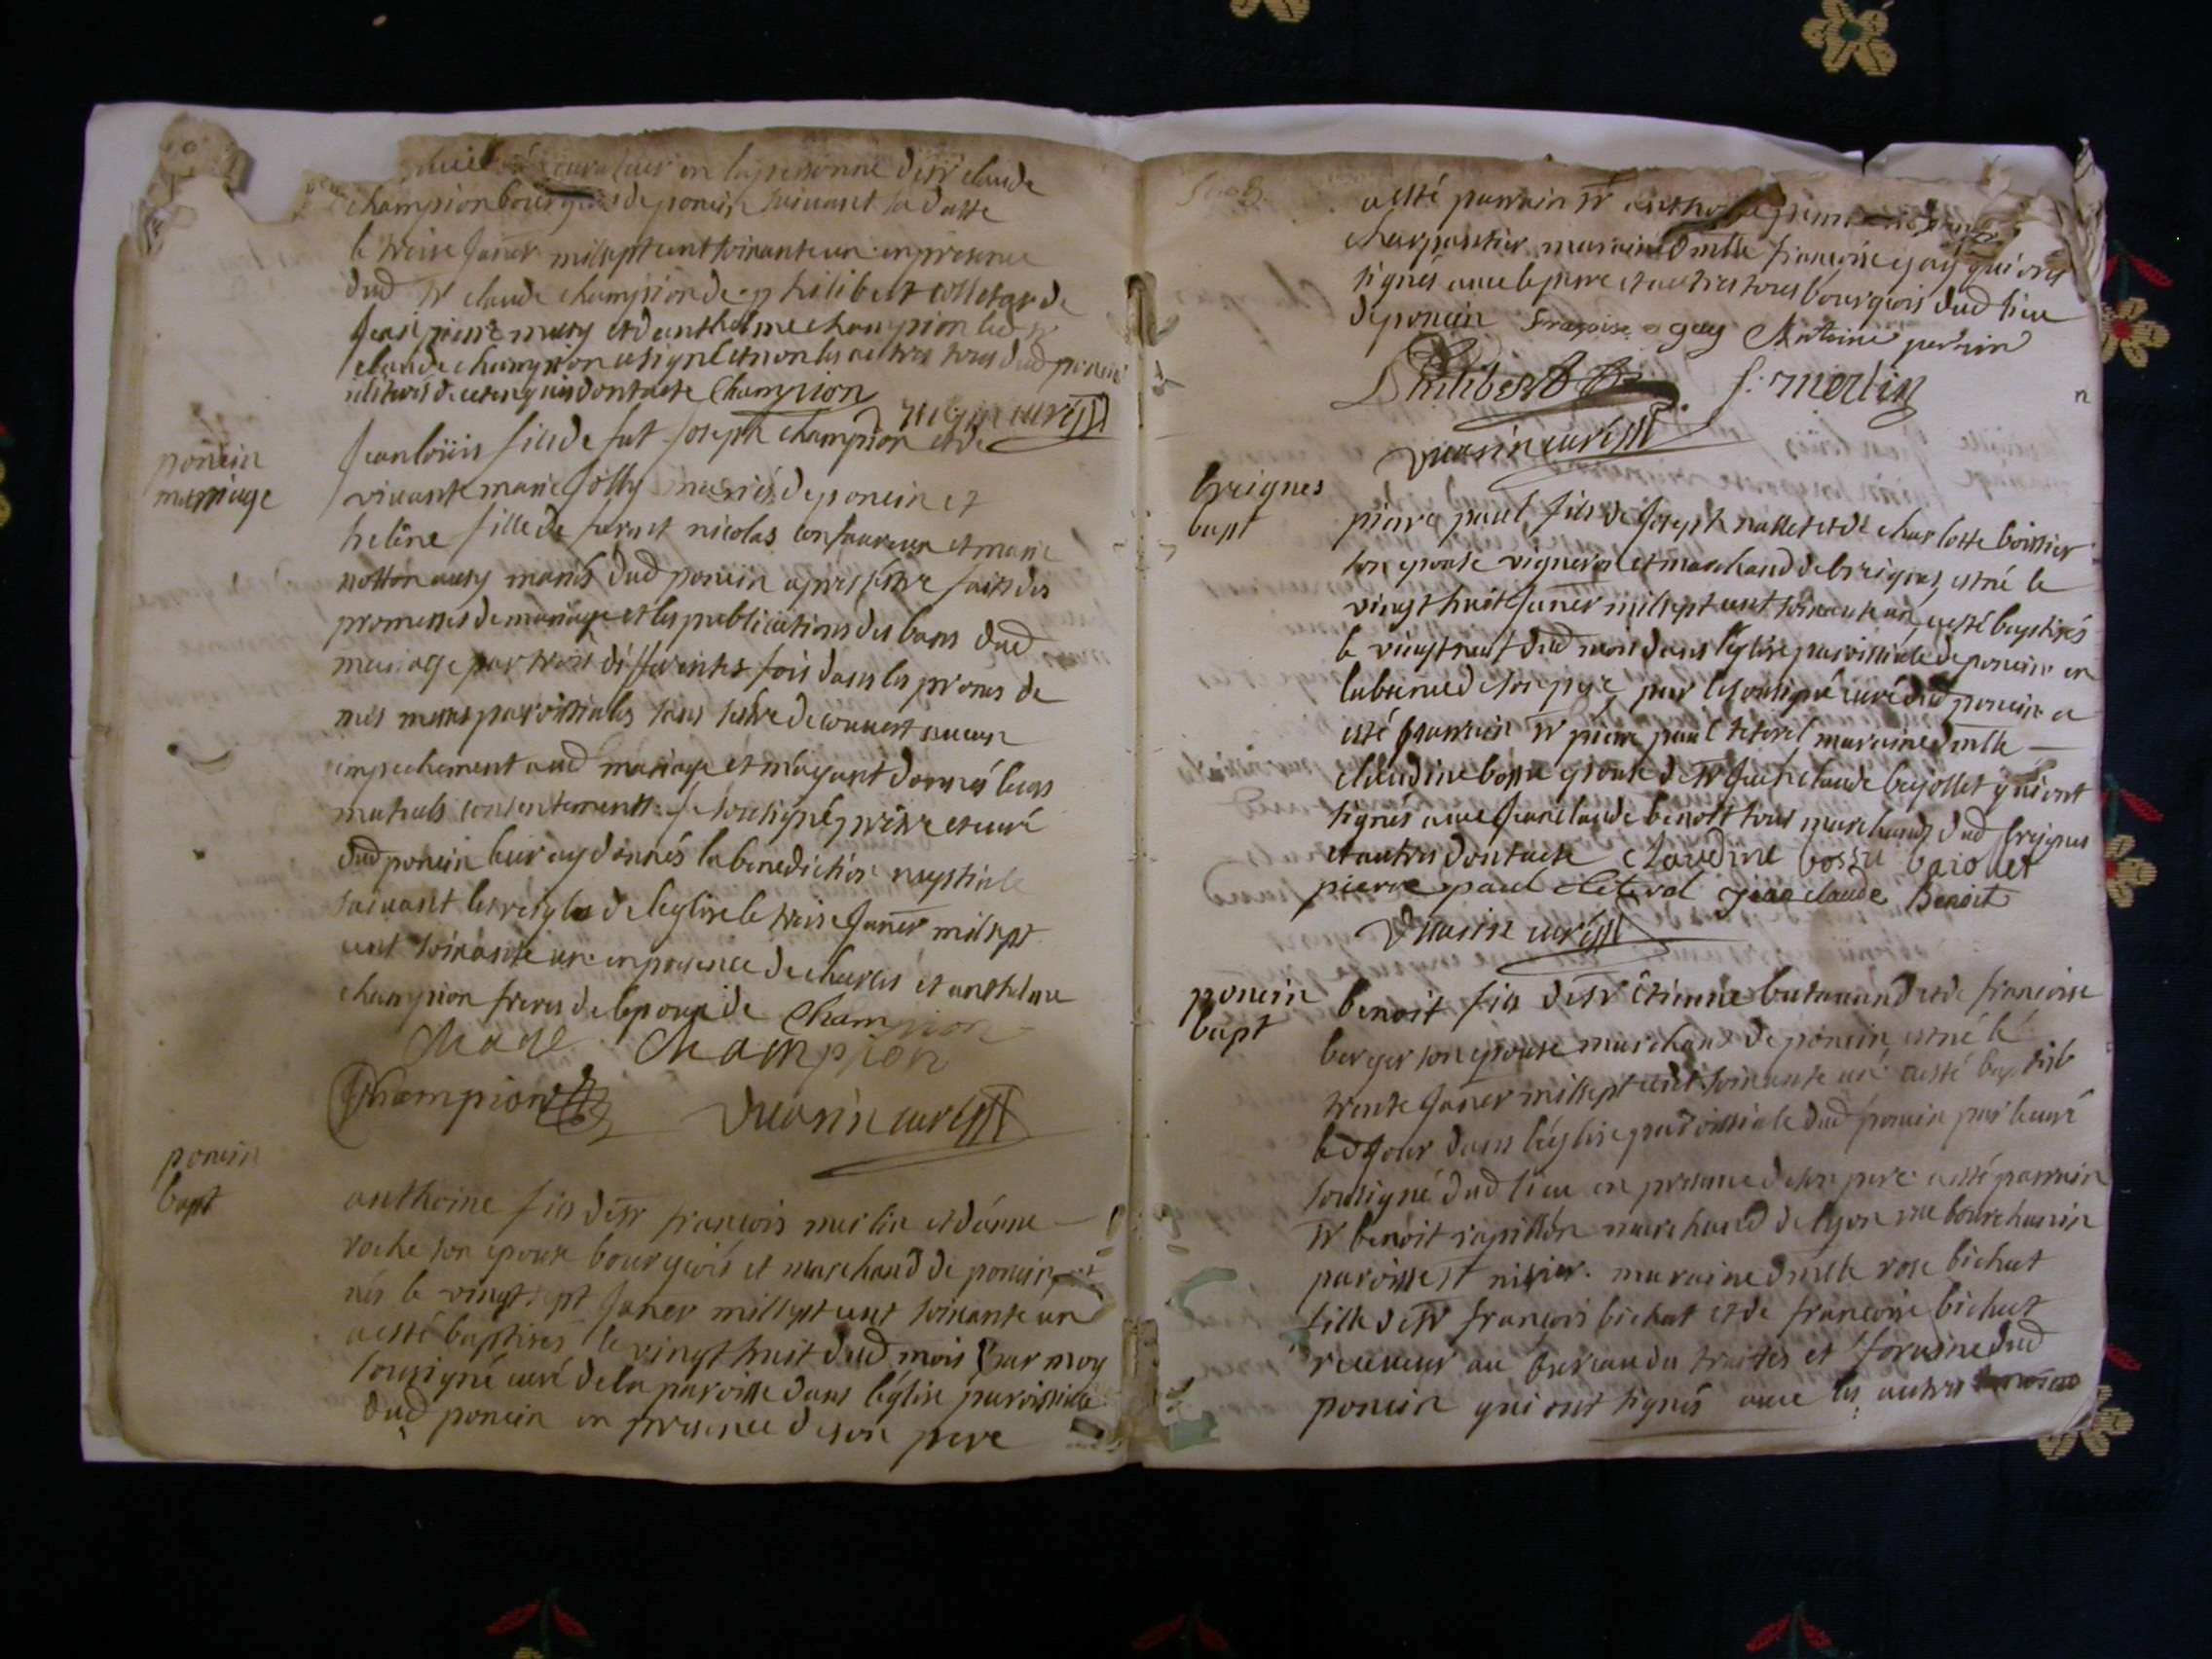 curateur en la personne de sr claude
champion bourgeois de poncin suivant sa datte
le treise janer mil sept cent soixante un en presence
dud sr claude champion de philibert colletar de
jean pierre mury et danthelme champion led sr
claude champion a signé et non les autres tous dud poncin
illiterés de ce enquis dont acte Champion
curé
poncin
marriage
jean loüis fils de fut joseph champion et de
vivante marie jolly mariés de poncin et
helêne fille de furent nicolas et marie
notton aussy mariés dud poncin apres sestre faits des
promesses de mariage et les publications des bans dud
mariage par trois differentes fois dans les prones de
mes messes paroissiales sans sestre decouvert aucun
impechement aud mariage et mayant donnés leurs
mutuels consentements je soussigné pretre et curé
dud poncin leur ay donnés la benediction nuptiale
suivant les reigles de leglise le treise janer mil sept
cent soixante un en presence de charles et anthelme
champion freres de lepoux de Champion
Champion
Champion curé
poncin
bapt
anthoine fils de sr françois merlin et danne
roche son epouse bourgeois et marchand de poncin
nés le vingt sept janer mil sept cent soixante un
a esté baptisés le vingt huit dud mois par moy
sousigné curé de la paroisse dans léglise paroissiale
dud poncin en presence de son pere
a esté parrain sr
charpantier maraine dmlle françoise gay qui ont
signés avec le pere et autres tous bourgeois dud lieu
de poncin françoise gay Antoine perrin
Philibert f: merlin
curé
brignes
bapt
pierre paul fils de joseph nallet et de charlotte boissier
son epouse vigneron et marchand de brignes, est né le
vingt huit janer mil sept cent soixante un, a esté baptisés
le vingt neuf dud mois dans léglise paroissiale de poncin en
labsence de son pere par le sousigné curé dud poncin a
esté parrain sr pierre paul maraine dmlle
claudine bossu epouse de sr jean claude qui ont
signés avec jean claude benoit tous marchands dud brignes
et autres dont acte claudine bossu
pierre paul jean claude Benoit
curé
poncin
bapt
benoit fils de sr êtienne et de françoise
berger son epouse marchand de poncin est né le
trente janer mil sept cent soixante un a esté baptisé
led jour dans léglise paroissiale dud poncin par le curé
sousigné dud lieu en presence de son pere a esté parrain
sr benoit papillon marchand de lyon rue bourchanin
paroisse st nisier. maraine dmlle rose bichat
fille de sr françois bichat et de françoise bichat
receveur au bureau des traites et foraine dud
poncin qui ont signés avec les autres